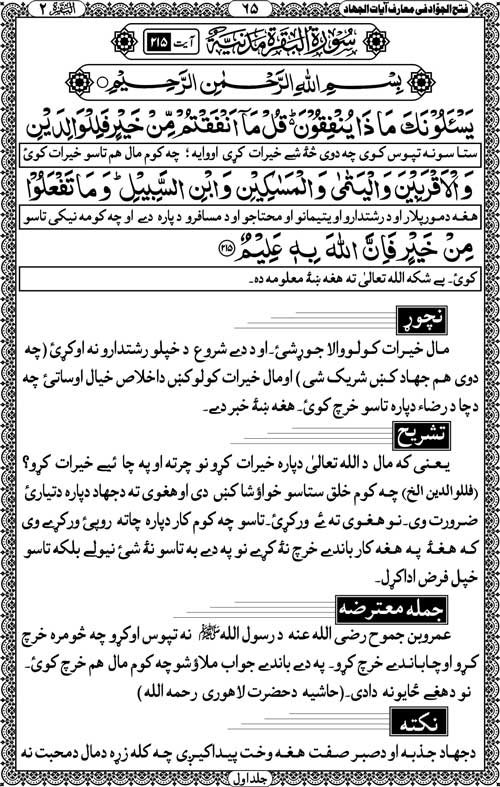 فتح الجوّاد فی معارف آیات الجهاد
٦٥
البقرة ٢
سُوْرَةُ الْبَقَرَةِ مَدَنِيَّةٌ آیت ٢١٥
بِسْمِ اللهِ الرَّحْمٰنِ الرَّحِيْمِ
يَسْـَٔلُوْنَكَ مَاذَا يُنْفِقُوْنَ ؕ قُلْ مَاۤ اَنْفَقْتُمْ مِّنْ خَيْرٍ فَلِلْوَالِدَيْنِ
ستاسو نه تپوس کوی چه دوی څۀ شے خیرات کړی اووایه ؛ چه کوم مال هم تاسو خیرات کوئ
وَالْاَقْرَبِيْنَ وَالْيَتٰمٰى وَالْمَسٰكِيْنِ وَابْنِ السَّبِيْلِ ؕ وَمَا تَفْعَلُوْا
هغه د مورپلار او د رشتدارو او یتیمانو او محتاجو او د مسافرو دپاره دے او چه کومه نیکی تاسو
مِنْ خَيْرٍ فَاِنَّ اللّٰهَ بِهٖ عَلِيْمٌ ٢١٥
کوئ۔ بے شکه الله تعالیٰ ته هغه ښۀ معلومه ده۔
نچوړ
مال خیرات کولو والا جوړشئ۔ او د دے شروع د خپلو رشتدارو نه اوکړئ (چه
دوی هم جهاد کښ شریک شی) او مال خیرات کولو کښ د اخلاص خیال اوساتئ چه
د چا د رضاء دپاره تاسو خرچ کوئ۔ هغه ښۀ خبر دے۔
تشریح
یعنی که مال د الله تعالیٰ دپاره خیرات کړو نو چرته او په چا ئیے خیرات کړو؟
(فللوالدین الخ) چه کوم خلق ستاسو خواؤشا کښ دی او هغوی ته د جهاد دپاره د تیارئ
ضرورت وی۔ نو هغوی ته ئے ورکړئ۔ تاسو چه کوم کار دپاره چاته روپئ ورکړے وی
که هغۀ په هغه کار باندے خرچ نۀ کړے نو په دے به تاسو نۀ شئ نیولے بلکه تاسو
خپل فرض اداکړل۔
جمله معترضه
عمرو بن جموح رضی الله عنه د رسول الله ﷺ نه تپوس اوکړو چه څومره خرچ
کړو او چا باندے خرچ کړو۔ په دے باندے جواب ملاؤ شو چه کوم مال هم خرچ کوئ۔
نو د هغے ځایونه دادی۔ (حاشیه د حضرت لاهوری رحمه الله)
نکته
د جهاد جذبه او د صبر صفت هغه وخت پیداکیږی چه کله زړه د مال د محبت نه
جلد اول